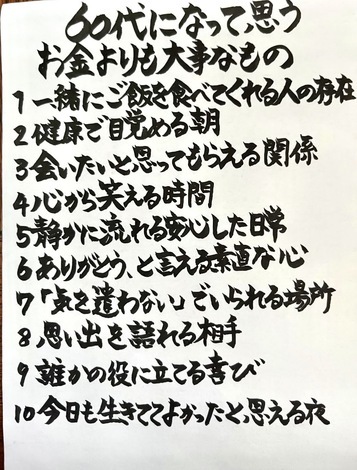 60代になって思う
お金よりも大事なもの
1 一緒にご飯を食べてくれる人の存在
2 健康で目覚める朝
3 会いたいと思ってもらえる関係
4 心から笑える時間
5 静かに流れる安心した日常
6 ありがとう、と言える素直な心
7 「気を遣わない」でいられる場所
8 思い出を語れる相手
9 誰かの役に立てる喜び
10 今日も生きててよかったと思える夜